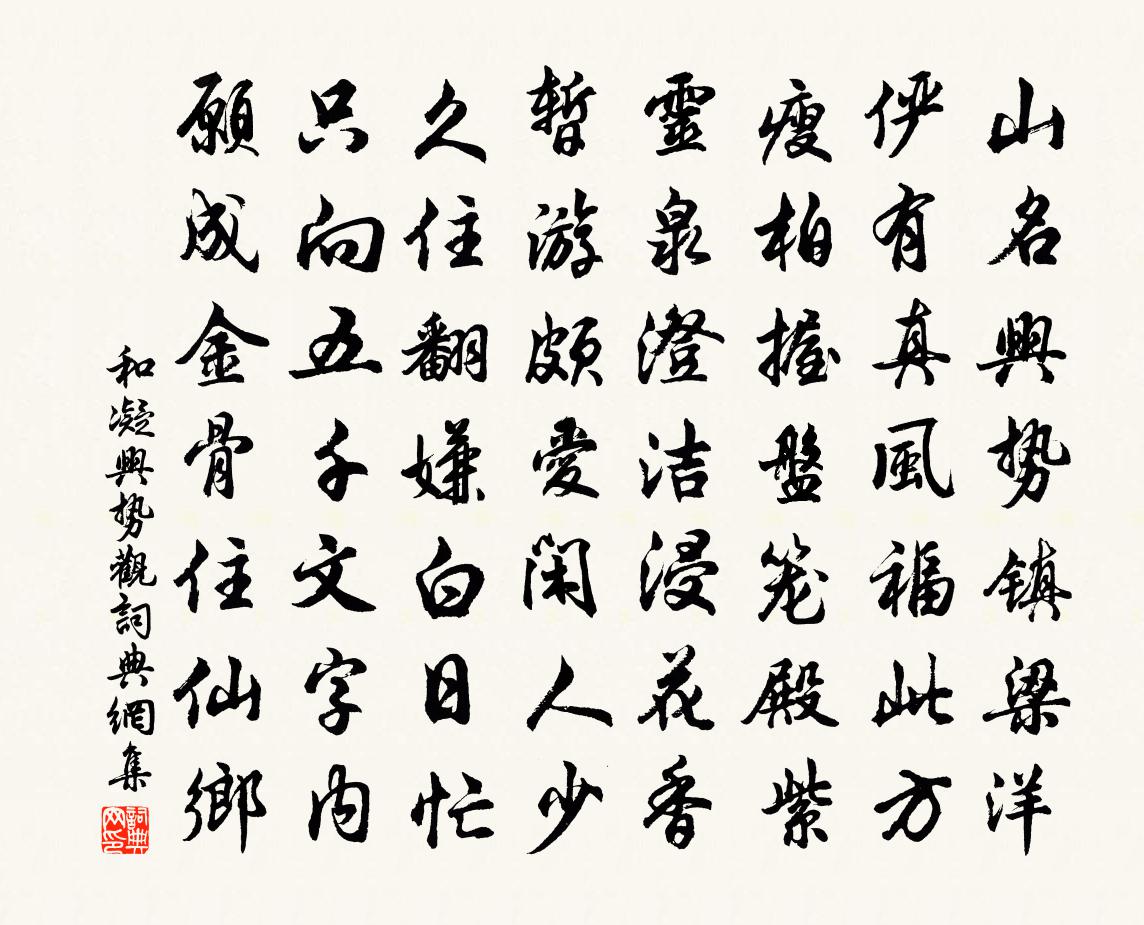 山名興势镇梁洋
俨有真風福此方
瘦柏握盤笼殿紫
靈泉澄洁浸花香
暂游颇愛闲人少
久住翻嫌白日忙
只向五千文字内
願成金骨住仙鄉
和凝興势觀詞典網集
詞典网印